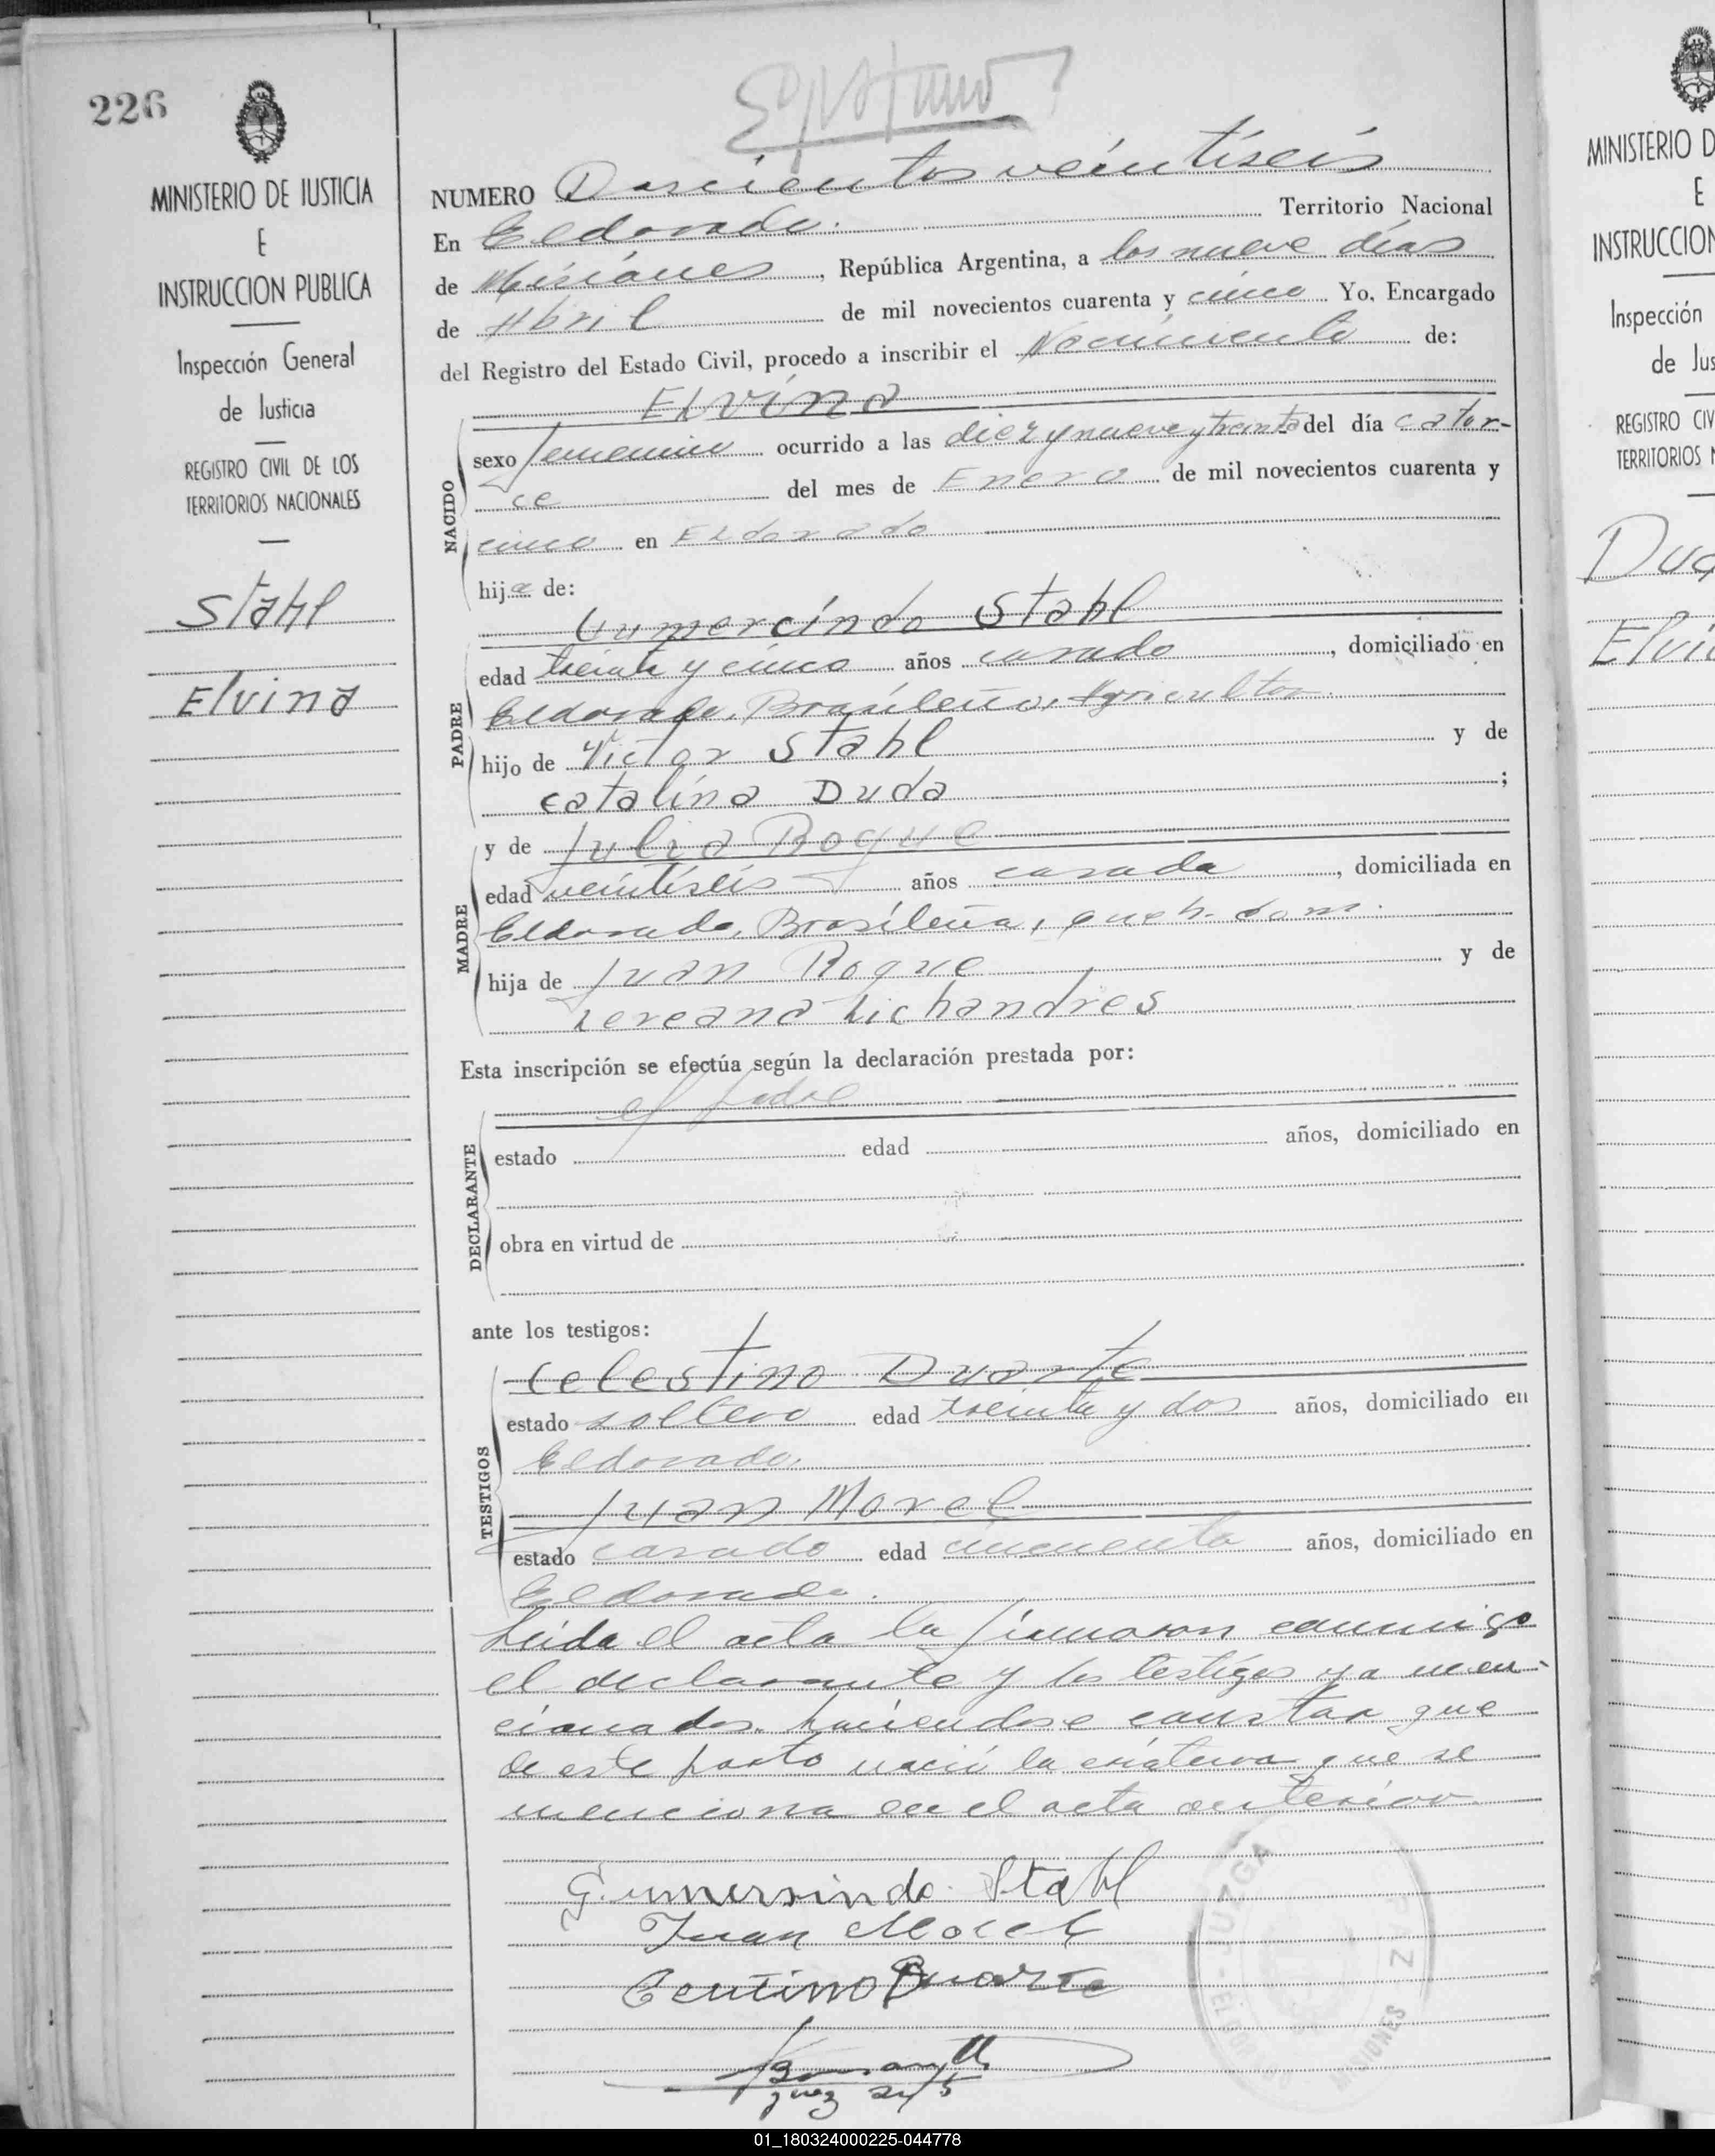 226
MINISTERIO DE JUSTICIA
E
INSTRUCCION PUBLICA
Inspección General
de Justicia
REGISTRO CIVIL DE LOS
TERRITORIOS NACIONALES
Stahl
Elvina
NUMERO Doscientos veintiseis
En Eldorado. Territorio Nacional
de Misiones, República Argentina, a los nueve días
de Abril de mil novecientos cuarenta y cinco Yo, Encargado
del Registro del Estado Civil, procedo a inscribir el Nacimiento de:
Elvina
NACIDO
sexo femenino ocurrido a las diez y nueve y treinta del día cator-
ce del mes de Enero de mil novecientos cuarenta y
cinco en Eldorado
hija de:
Gumercindo Stahl
PADRE
edad treinta y cinco años casado, domiciliado en
Eldorado, Brasileño, Agricultor.
hijo de Victor Stahl y de
Catalina Duda;
y de Julia Roque
MADRE
edad veintiseis años casada, domiciliada en
Eldorado, Brasileña, queh. dom.
hija de Juan Roque y de
Lichandres
Esta inscripción se efectúa según la declaración prestada por:
el padre
DECLARANTE
estado edad años, domiciliado en
obra en virtud de
ante los testigos:
Celestino Duarte
TESTIGOS
estado soltero edad treinta y dos años, domiciliado en
Eldorado.
Juan Morel
estado casado edad cincuenta años, domiciliado en
Eldorado.
Leida el acta la firmaron conmigo
el declarante y los testigos ya men-
cionados. haciendose constar que
de este parto nació la criatura que se
menciona en el acta anterior
Gumersindo Stahl
Juan Morel
Duarte
Juez
JUZGADO PAZ
MISIONES
MINISTERIO D
E
INSTRUCCION
Inspección
de Jus
REGISTRO CIV
TERRITORIOS N
Elvi
01_180324000225-044778